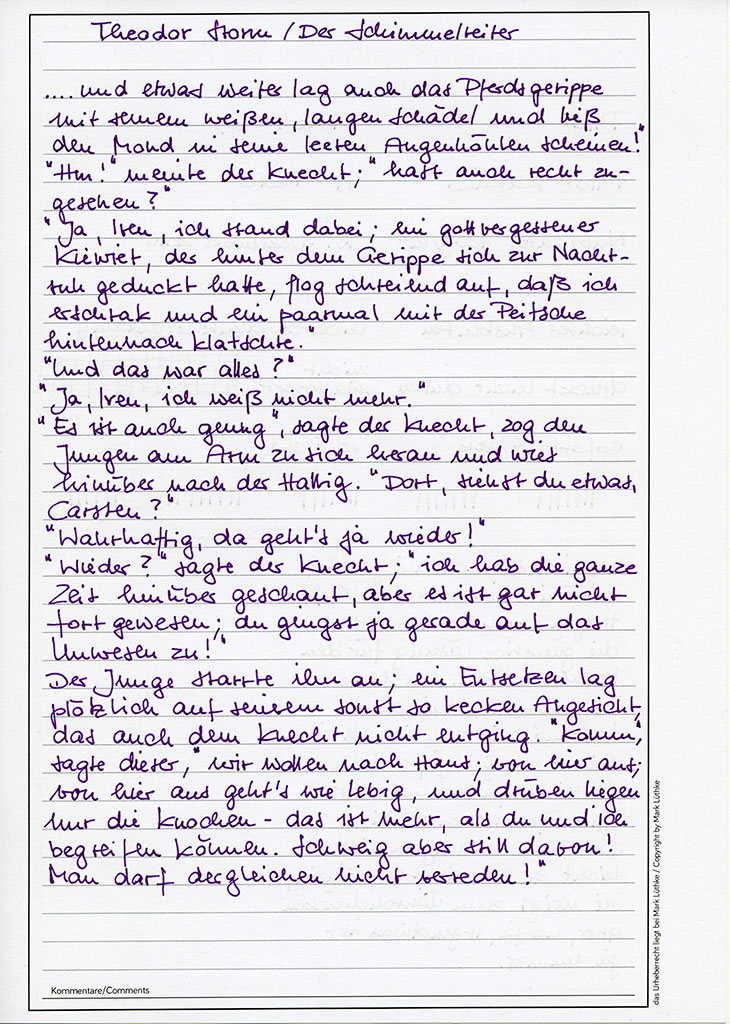 Theodor Storm / Der Schimmelreiter
.... und etwas weiter lag auch das Pferdsgerippe
mit seinem weißen, langen Schädel und ließ
den Mond in seine leeren Augenhöhlen scheinen!"
"Hm!" meinte der Knecht; "hast auch recht zu-
gesehen?"
"Ja, Iven, ich stand dabei; ein gottvergessener
Kiewiet, der hinter dem Gerippe sich zur Nacht-
ruh geduckt hatte, flog schreiend auf, daß ich
erschrak und ein paarmal mit der Peitsche
hintennach klatschte."
"Und das war alles?"
"Ja, Iven, ich weiß nicht mehr."
"Es ist auch genug", sagte der Knecht, zog den
Jungen am Arm zu sich heran und wies
hinüber nach der Hallig. "Dort, siehst du etwas,
Carsten?"
"Wahrhaftig, da geht's ja wieder!"
"Wieder?" sagte der Knecht; "ich hab die ganze
Zeit hinüber geschaut, aber es ist gar nicht
fort gewesen; du gingst ja gerade auf das
Unwesen zu!"
Der Junge starrte ihn an; ein Entsetzen lag
plötzlich auf seinem sonst so kecken Angesicht,
das auch dem Knecht nicht entging. "Komm",
sagte dieser, "wir wollen nach Haus; von hier aus;
von hier aus geht's wie lebig, und drüben liegen
nur die Knochen - das ist mehr, als du und ich
begreifen können. Schweig aber still davon!
Man darf dergleichen nicht verreden!"
Kommentare/Comments
das Urheberrecht liegt bei Mark Lüthke / Copyright by Mark Lüthke